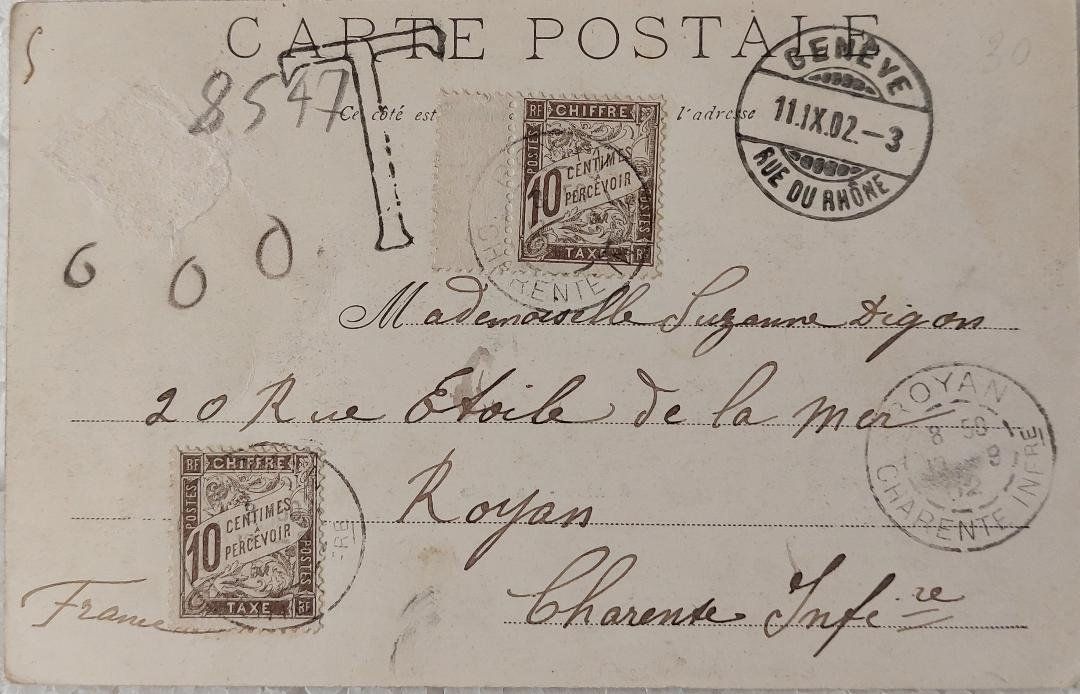 CARTE POSTALE
8547
T
Ce côté est
l'adresse
30
RF CHIFFRE
POSTES
10 CENTIMES
À
PERCEVOIR
POSTES
TAXE RF
CHARENTE
GENÈVE
11.IX.02.-3
RUE DU RHÔNE
0 0 0
Mademoiselle Suzanne Digon
20 Rue Etoile de la mer
Royan
Charente Infire
France
ROYAN
8 50
9
02
CHARENTE INFRE
RF CHIFFRE
POSTES
10 CENTIMES
À
PERCEVOIR
POSTES
TAXE RF
FRE